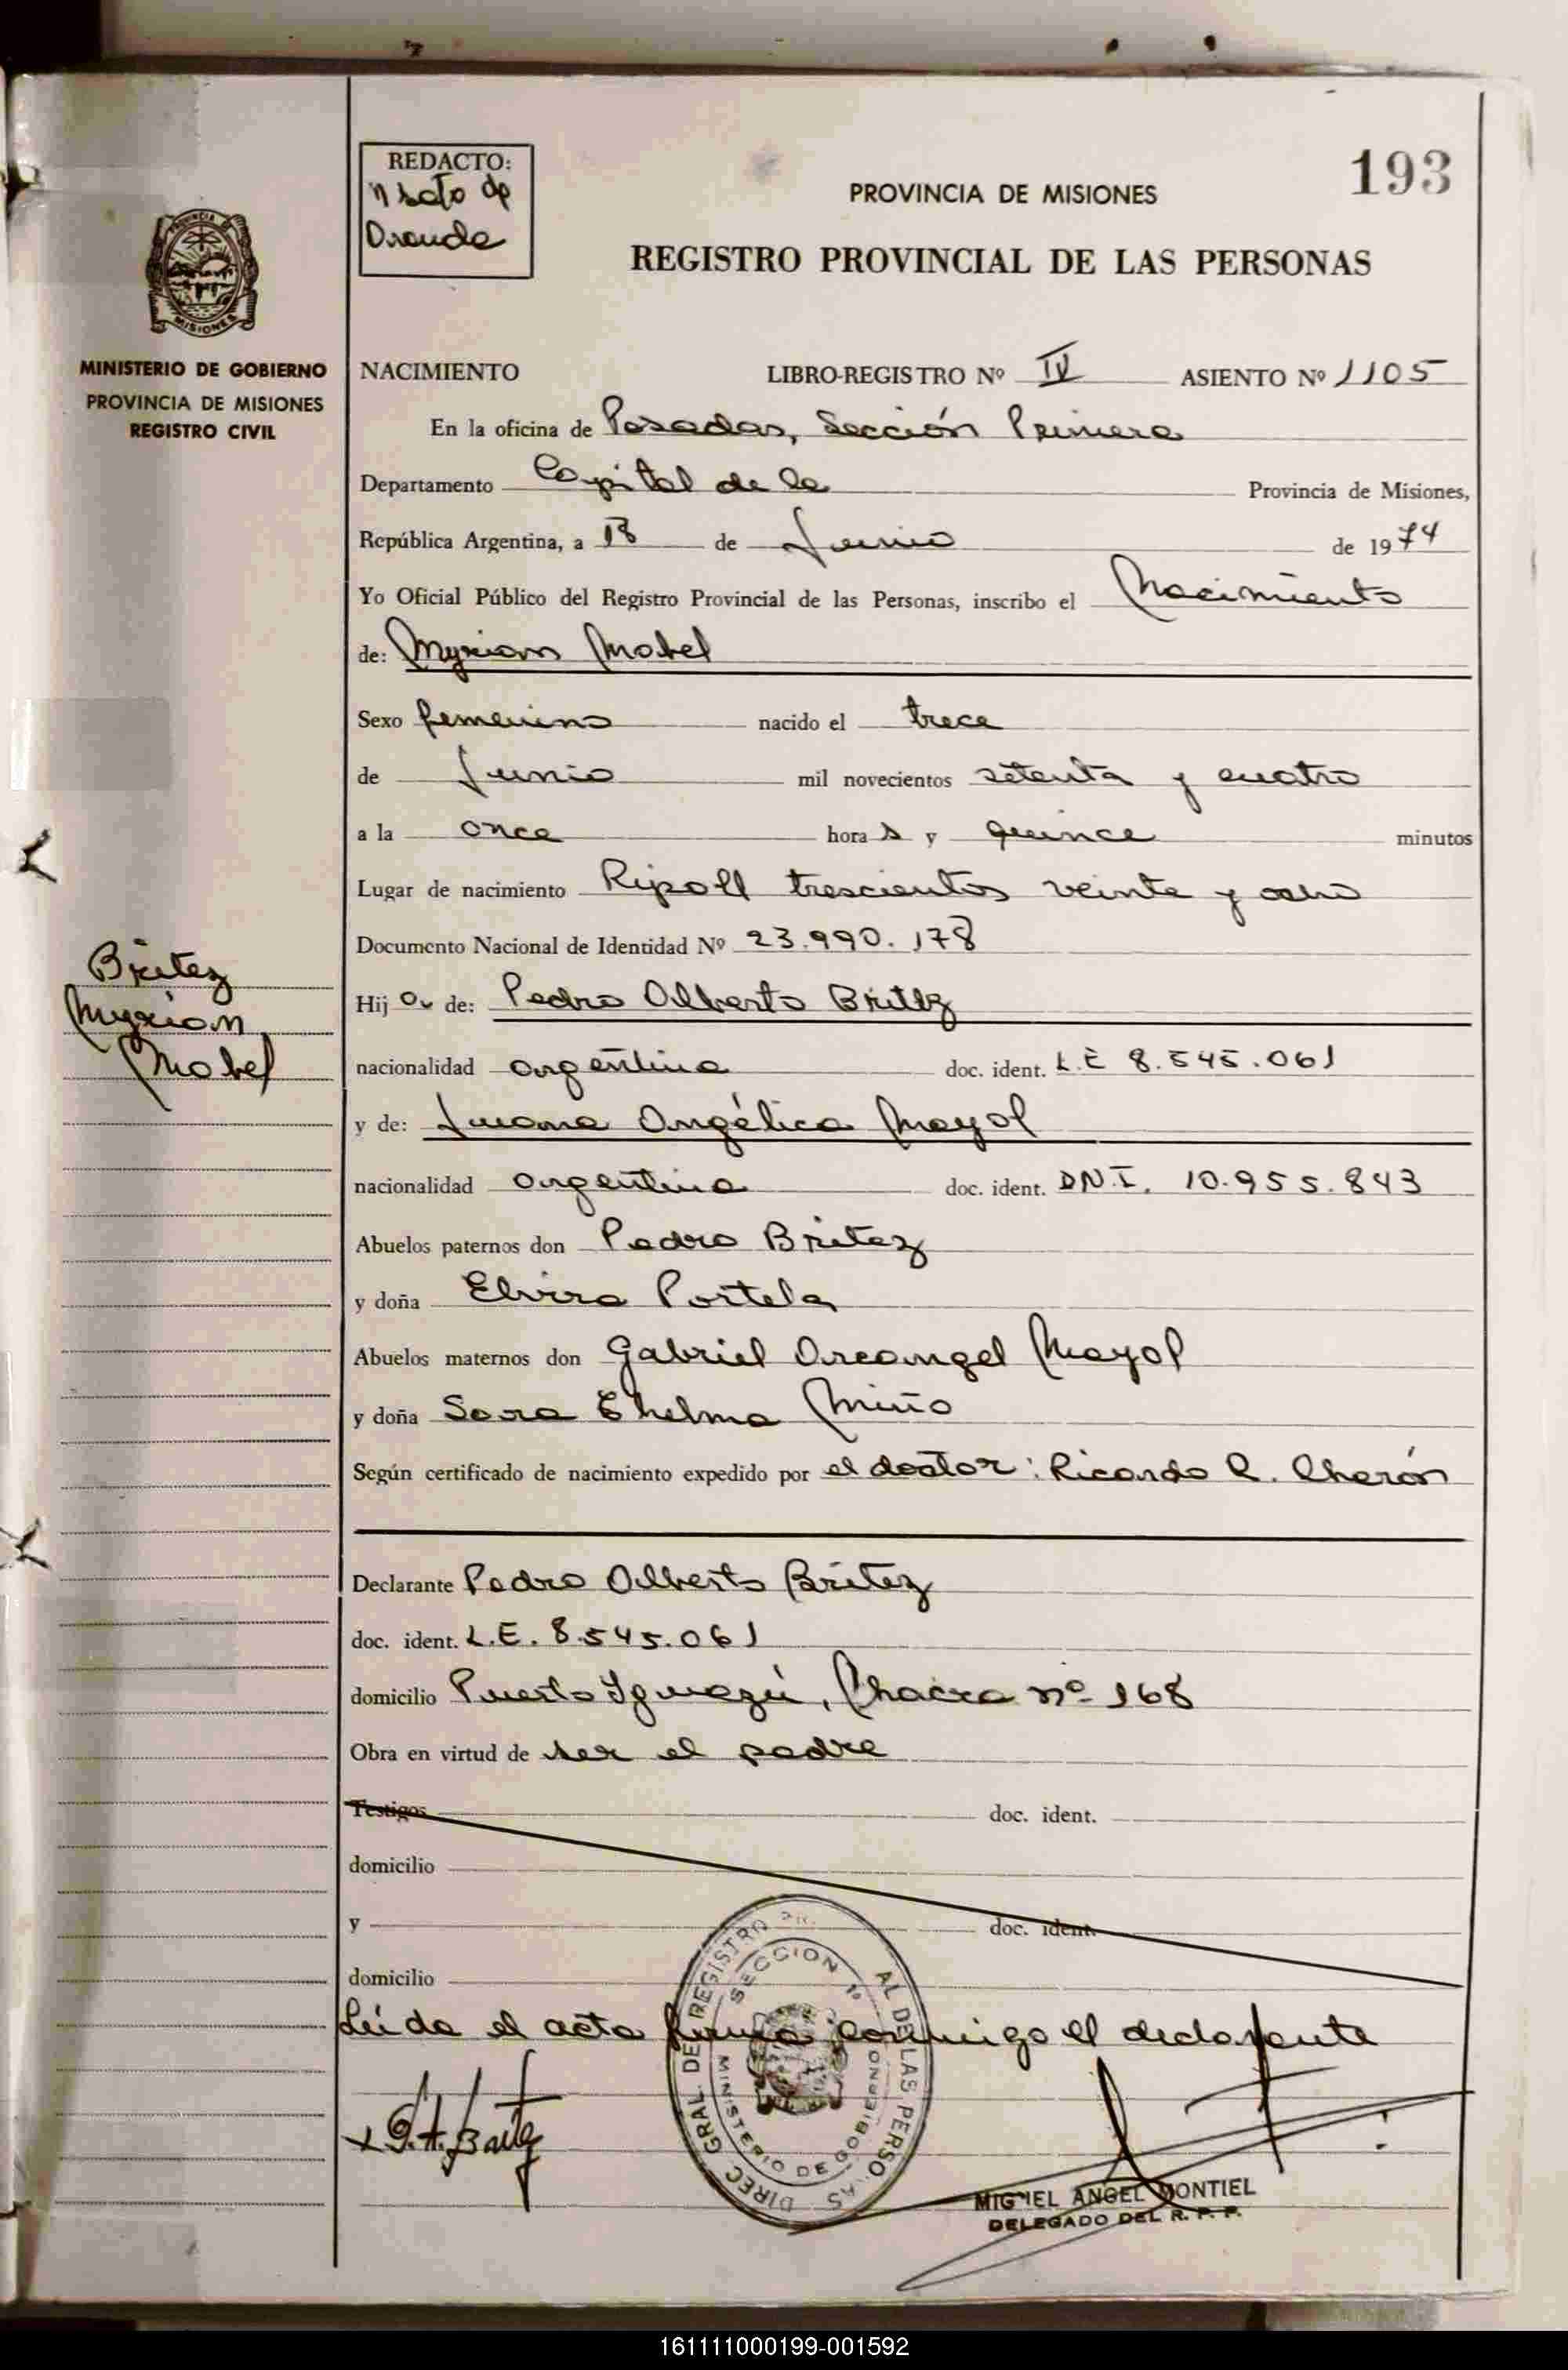 193
REDACTO:
PROVINCIA DE MISIONES
REGISTRO PROVINCIAL DE LAS PERSONAS
MISIONES
MINISTERIO DE GOBIERNO
PROVINCIA DE MISIONES
REGISTRO CIVIL
NACIMIENTO LIBRO-REGISTRO Nº IV ASIENTO Nº 1105
En la oficina de Posadas, Sección Primera
Departamento Capital de la Provincia de Misiones,
República Argentina, a de Junio de 1974
Yo Oficial Público del Registro Provincial de las Personas, inscribo el Nacimiento
de: Myriam Mabel
Sexo femenino nacido el trece
de Junio mil novecientos setenta y cuatro
a la once hora s y quince minutos
Lugar de nacimiento Ripoll trescientos veinte y ocho
Documento Nacional de Identidad Nº 23.990.178
Britez
Myriam
Mabel
Hij a de: Pedro Alberto Britez
nacionalidad argentina doc. ident. L.E 8.545.061
y de: Juana Angélica Mayol
nacionalidad argentina doc. ident. D.N.I. 10.955.843
Abuelos paternos don Pedro Britez
y doña Elvira Portela
Abuelos maternos don Gabriel Arcangel Mayol
y doña Sara Ehelma Miño
Según certificado de nacimiento expedido por el doctor: Ricardo R. Cherón
Declarante Pedro Alberto Britez
doc. ident. L.E. 8.545.061
domicilio Puerto Iguazú, Chacra nº 168
Obra en virtud de ser el padre
Testigos doc. ident.
domicilio
y doc. ident.
domicilio
Leída el acta firma conmigo el declarante
DIREC. GRAL. DE REGISTRO PR. AL DE LAS PERSONAS
SECCION 1º
MINISTERIO DE GOBIERNO
P.A. Britez
MIGUEL ANGEL MONTIEL
DELEGADO DEL R. P. P.
161111000199-001592